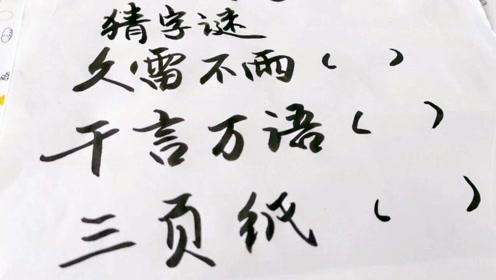 猜字谜
久雷不雨( )
千言万语( )
三页纸( )